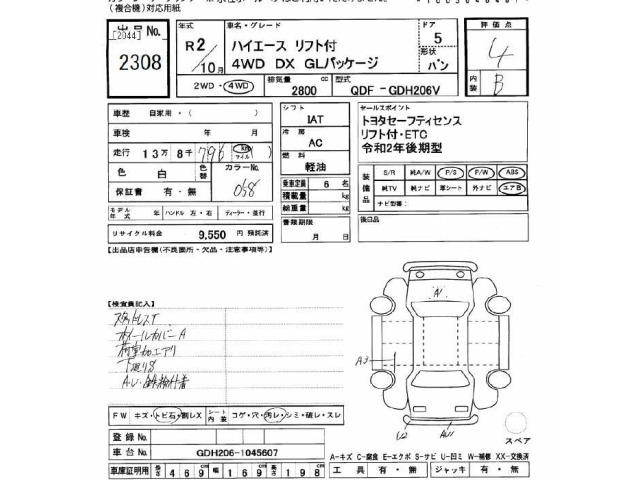 (複合機)対応用紙
出品No. [2044] 2308
年式 R2/10月
車名・グレード ハイエース リフト付
4WD DX GLパッケージ
ドア 5
形状 バン
評価点 4
内装 B
2WD・4WD
排気量 2800 cc
型式 QDF - GDH206V
車歴 自家用・( )
車検 年 月
走行 13万8千796 (km マイル)
色 白 色替 カラーNo. 058
保証書 有・無
モデル年式 年 ハンドル 左・右 ディーラー・並行
リサイクル料金 9,550 円 預託済
シフト IAT
冷房 AC
燃料 軽油
乗車定員 6 名
積載量 kg
総重量 kg
書類期限 月 日
セールスポイント
トヨタセーフティセンス
リフト付・ETC
令和2年後期型
装備品 S/R 純A/W P/S P/W ABS
純TV 純ナビ 革シート 外ナビ エアB
ナビ型番:
後日品
【出品店申告欄(不良箇所・欠品・注意事項等)】
【検査員記入】
スタットレスT
ホイールカバーA
荷室加工アリ
下廻りS
A1
A3
U2
FW キズ・トビ石・割レX シート内装 コゲ・穴・汚レ・シミ・破レ・スレ
登録No.
車台No. GDH206-1045607
車庫証明用 長さ 469cm 幅 169cm 高さ 198cm
スペア
A-キズ C-腐食 E-エクボ S-サビ U-凹ミ W-補修 XX-交換済
工具 有・無 ジャッキ 有・無